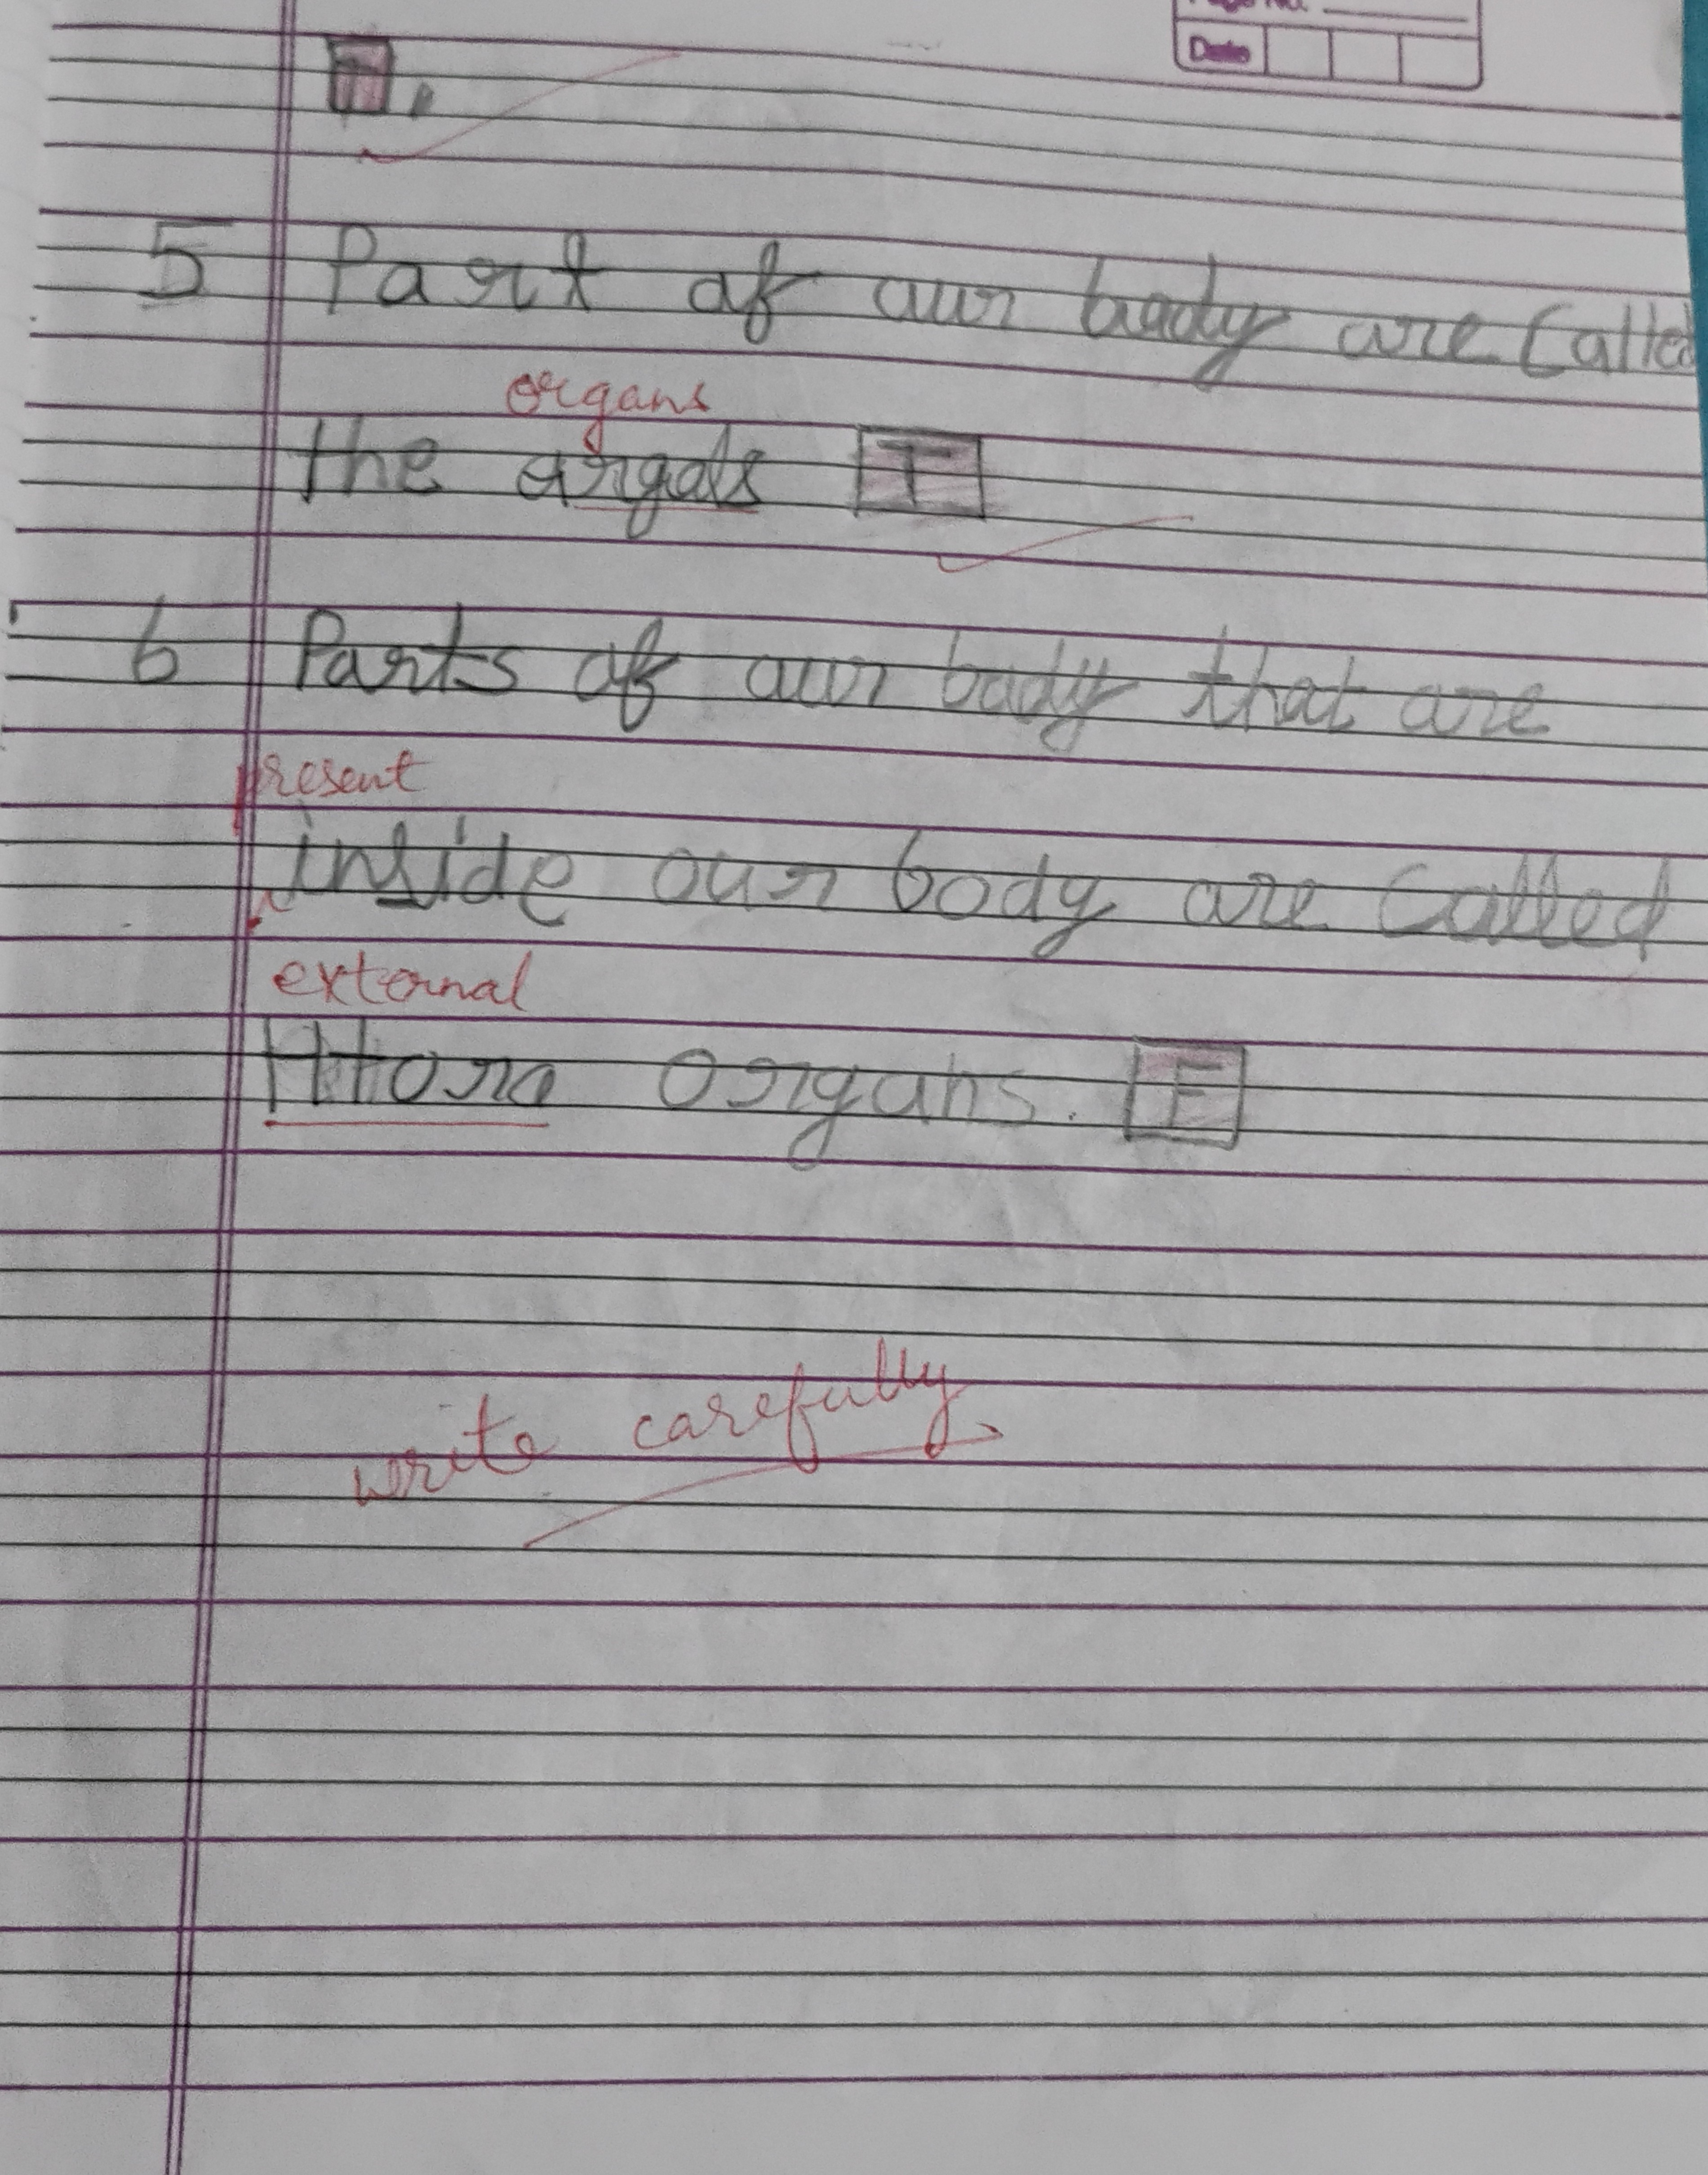 Page No.
Date
T.
5 Part of our body are called
organs
the argals T
6 Parts of our body that are
present
inside our body are called
external
organs. F
write carefully